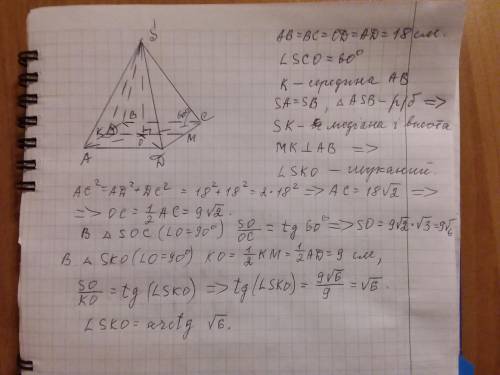 S
B
C
60°
K
O
M
A
D
AB=BC=CD=AD=18 см.
∠SCO=60°
K – середина AB
SA=SB, △ASB – р/б =>
SK – медіана і висота
MK⊥AB =>
∠SKO – шуканий.
AC²=AD²+DC²=18²+18²=2·18² => AC=18√2 =>
=> OC=½AC=9√2.
В △SOC (∠O=90°) SO/OC = tg 60° => SO=9√2·√3=9√6
В △SKO (∠O=90°) KO=½KM=½AD=9 см,
SO/KO = tg(∠SKO) => tg(∠SKO)=9√6/9=√6.
∠SKO=arctg √6.